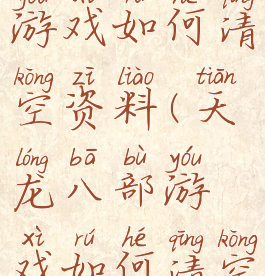 yóu xì rú hé qīng
游戏如何清
kōng zī liào tiān
空资料(天
lóng bā bù yóu
龙八部游
xì rú hé qīng kōng
戏如何清空